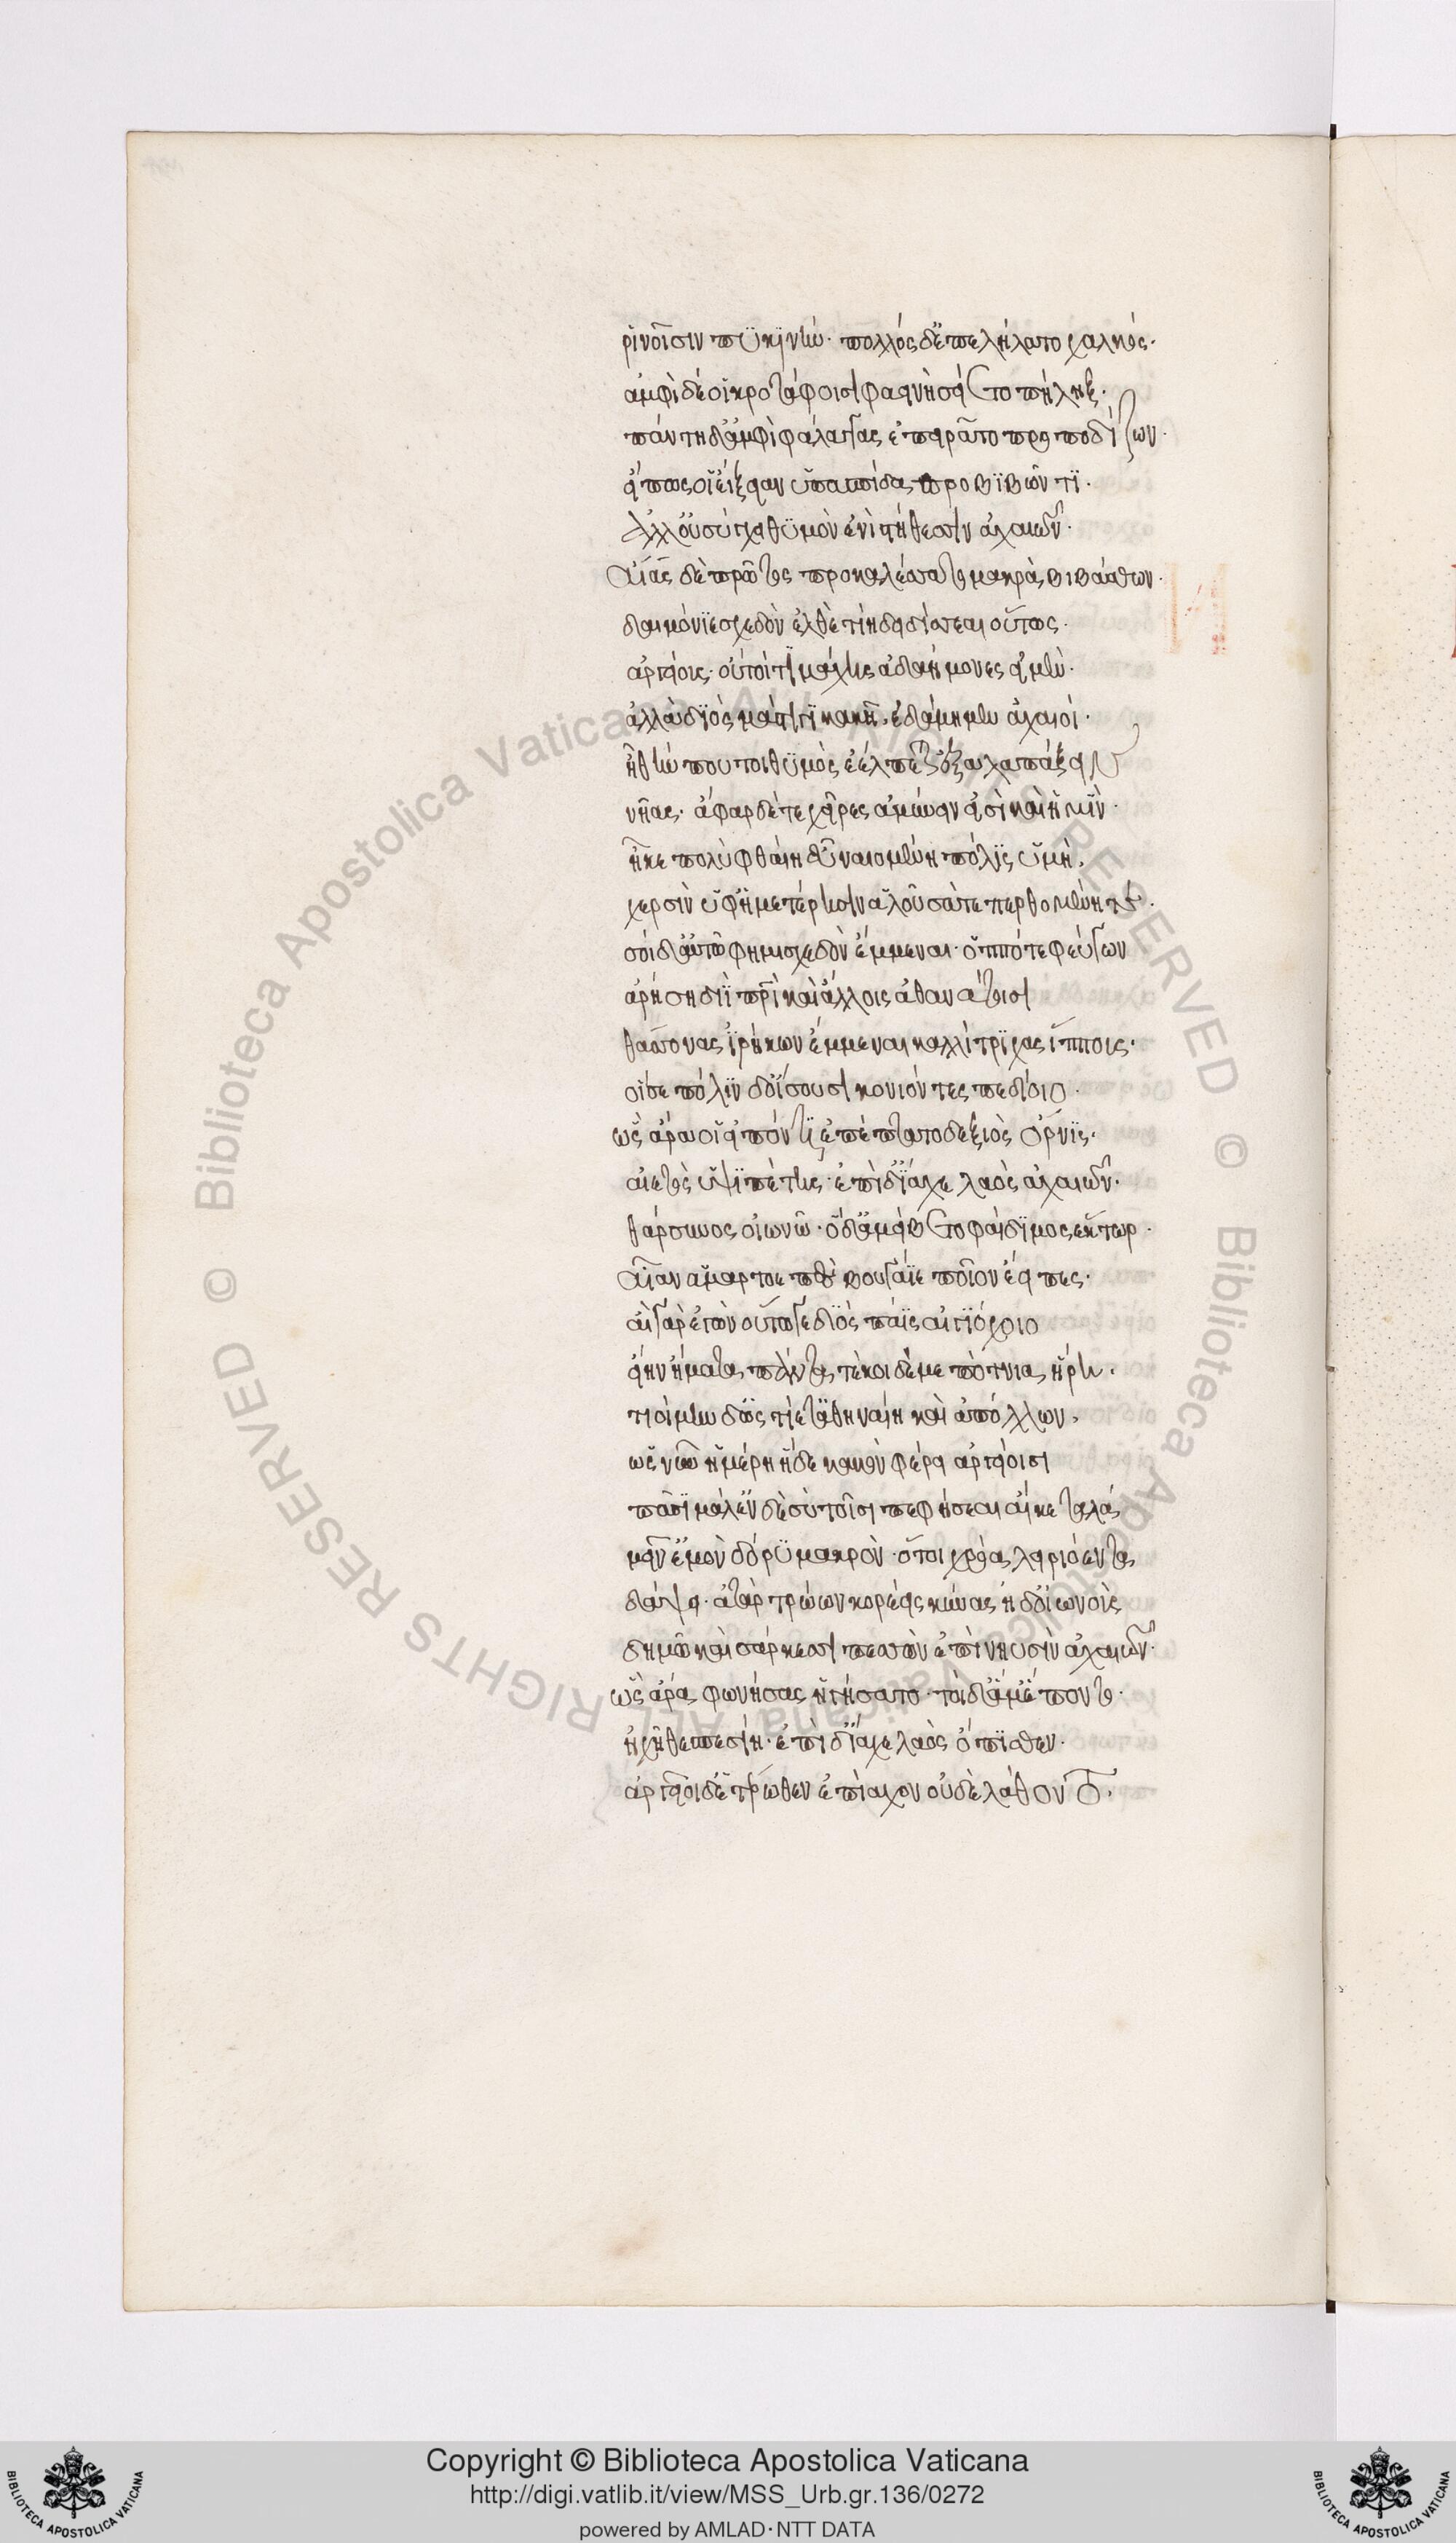 ῥινοῖσιν πυκινήν· πολλὸς δ' ἐπελήλατο χαλκός·
ἀμφὶ δέ οἱ κροτάφοισι φαεινὴ σείετο πήληξ·
πάντη δ' ἀμφὶ φάλαγγας ἐπειρᾶτο προποδίζων·
εἴ πως οἱ εἴξειαν ὑπασπίδα προβιβῶντι·
ἀλλ' οὐ σύγχει θυμὸν ἐνὶ στήθεσσιν ἀχαιῶν·
Αἴας δὲ πρῶτος προκαλέσσατο μακρὰ βιβάσθων·
δαιμόνιε σχεδὸν ἐλθὲ τίη δειδίσσεαι οὕτως·
ἀργείους· οὔτοί τι μάχης ἀδαήμονες εἰμέν·
ἀλλὰ διὸς μάστιγι κακῇ ἐδάμημεν ἀχαιοί·
ἦ θήν που τοι θυμὸς ἐέλπεται ἐξαλαπάξειν
νῆας· ἄφαρ δέ τε χεῖρες ἀμύνειν εἰσὶ καὶ ἡμῖν·
ἦ κε πολὺ φθαίη εὖ ναιομένη πόλις ὑμή,
χερσὶν ὑφ' ἡμετέρῃσιν ἁλοῦσά τε περθομένη τε·
σοὶ δ' αὐτῷ φημι σχεδὸν ἔμμεναι· ὁππότε φεύγων
ἀρήσῃ διὶ πατρὶ καὶ ἄλλοις ἀθανάτοισι
θάσσονας ἰρήκων ἔμμεναι καλλίτριχας ἵππους·
οἵ σε πόλιν δ' οἴσουσι κονίοντες πεδίοιο·
ὣς ἄρα οἱ εἰπόντι ἐπέπτατο δεξιὸς ὄρνις·
αἰετὸς ὑψιπέτης· ἐπὶ δ' ἴαχε λαὸς ἀχαιῶν·
θάρσυνος οἰωνῷ· ὁ δ' ἀμείβετο φαίδιμος ἕκτωρ·
Αἶαν ἁμαρτοεπὲς βουγάϊε ποῖον ἔειπες·
αἲ γὰρ ἐγὼν οὕτω γε διὸς πάϊς αἰγιόχοιο
εἴην ἤματα πάντα, τέκοι δέ με πότνια ἥρη·
τιοίμην δ' ὡς τίετ' ἀθηναίη καὶ ἀπόλλων,
ὡς νῦν ἡμέρη ἥδε κακὸν φέρει ἀργείοισι
πᾶσι μάλ' ἐν δὲ σὺ τοῖσι πεφήσεαι αἴ κε ταλάσ
μεῖναι ἐμὸν δόρυ μακρὸν· ὅ τοι χρόα λειριόεντα
δάψει· ἀτὰρ τρώων κορέεις κύνας ἠδ' οἰωνοὺς
δημῷ καὶ σάρκεσσι πεσὼν ἐπὶ νηυσὶν ἀχαιῶν·
ὣς ἄρα φωνήσας ἡγήσατο· τοὶ δ' ἅμ' ἕποντο·
ἠχῇ θεσπεσίῃ· ἐπὶ δ' ἴαχε λαὸς ὄπισθεν·
ἀργεῖοι δ' ἑτέρωθεν ἐπίαχον οὐδ' ἐλάθοντο·
Copyright © Biblioteca Apostolica Vaticana
http://digi.vatlib.it/view/MSS_Urb.gr.136/0272
powered by AMLAD·NTT DATA